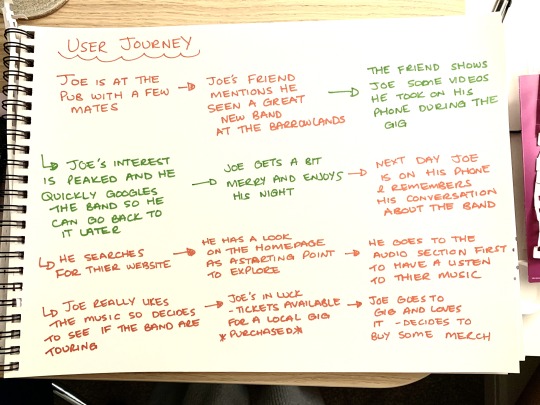 USER JOURNEY
JOE IS AT THE
PUB WITH A FEW
MATES
JOE'S FRIEND
MENTIONS HE
SEEN A GREAT
NEW BAND
AT THE BARROWLANDS
THE FRIEND SHOWS
JOE SOME VIDEOS
HE TOOK ON HIS
PHONE DURING THE
GIG
JOE'S INTEREST
IS PEAKED AND HE
QUICKLY GOOGLES
THE BAND SO HE
CAN GO BACK TO
IT LATER
JOE GETS A BIT
MERRY AND ENJOYS
HIS NIGHT
NEXT DAY JOE
IS ON HIS PHONE
& REMEMBERS
HIS CONVERSATION
ABOUT THE BAND
HE SEARCHES
FOR THIER WEBSITE
HE HAS A LOOK
ON THE HOMEPAGE
AS A STARTING POINT
TO EXPLORE
HE GOES TO THE
AUDIO SECTION FIRST
TO HAVE A LISTEN
TO THIER MUSIC
JOE REALLY LIKES
THE MUSIC SO DECIDES
TO SEE IF THE BAND ARE
TOURING
JOE'S IN LUCK
- TICKETS AVAILABLE
FOR A LOCAL GIG
*PURCHASED*
JOE GOES TO
GIG AND LOVES
IT - DECIDES TO
BUY SOME MERCH